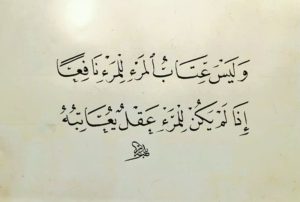 وَلَيْسَ عِتَابُ ٱلْمَرْءِ لِلْمَرْءِ نَافِعًا
إِذَا لَمْ يَكُنْ لِلْمَرْءِ عَقْلٌ يُعَاتِبُهُ